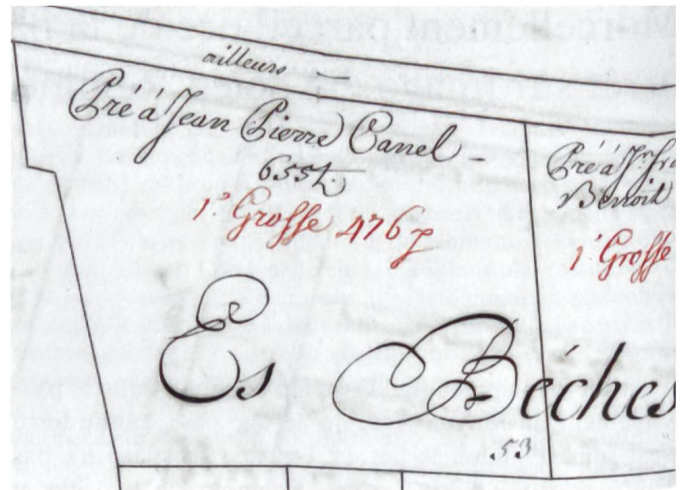 ailleurs
Pré à Jean Pierre Canel
655 t.
1e. Grosse 476
Pré à Js. fr
Benoit
1e Grosse
Es Béches
53